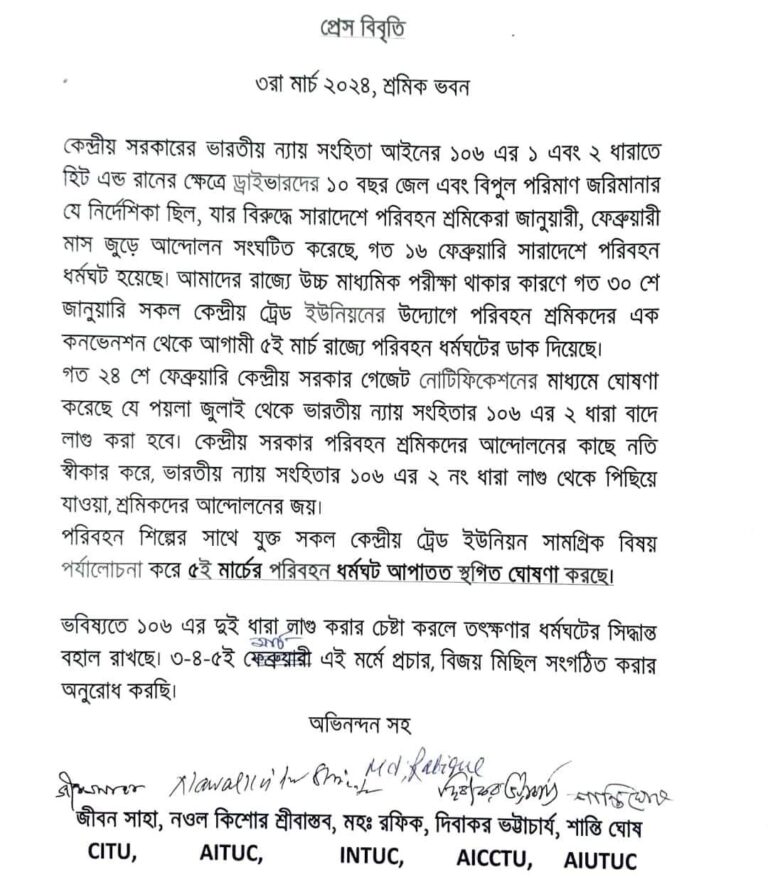 প্রেস বিবৃতি
৩রা মার্চ ২০২৪, শ্রমিক ভবন
কেন্দ্রীয় সরকারের ভারতীয় ন্যায় সংহিতা আইনের ১০৬ এর ১ এবং ২ ধারাতে
হিট এন্ড রানের ক্ষেত্রে ড্রাইভারদের ১০ বছর জেল এবং বিপুল পরিমাণ জরিমানার
যে নির্দেশিকা ছিল, যার বিরুদ্ধে সারাদেশে পরিবহন শ্রমিকেরা জানুয়ারী, ফেব্রুয়ারী
মাস জুড়ে আন্দোলন সংঘটিত করেছে, গত ১৬ ফেব্রুয়ারি সারাদেশে পরিবহন
ধর্মঘট হয়েছে। আমাদের রাজ্যে উচ্চ মাধ্যমিক পরীক্ষা থাকার কারণে গত ৩০ শে
জানুয়ারি সকল কেন্দ্রীয় ট্রেড ইউনিয়নের উদ্যোগে পরিবহন শ্রমিকদের এক
কনভেনশন থেকে আগামী ৫ই মার্চ রাজ্যে পরিবহন ধর্মঘটের ডাক দিয়েছে।
গত ২৪ শে ফেব্রুয়ারি কেন্দ্রীয় সরকার গেজেট নোটিফিকেশনের মাধ্যমে ঘোষণা
করেছে যে পয়লা জুলাই থেকে ভারতীয় ন্যায় সংহিতার ১০৬ এর ২ ধারা বাদে
লাগু করা হবে। কেন্দ্রীয় সরকার পরিবহন শ্রমিকদের আন্দোলনের কাছে নতি
স্বীকার করে, ভারতীয় ন্যায় সংহিতার ১০৬ এর ২ নং ধারা লাগু থেকে পিছিয়ে
যাওয়া, শ্রমিকদের আন্দোলনের জয়।
পরিবহন শিল্পের সাথে যুক্ত সকল কেন্দ্রীয় ট্রেড ইউনিয়ন সামগ্রিক বিষয়
পর্যালোচনা করে ৫ই মার্চের পরিবহন ধর্মঘট আপাতত স্থগিত ঘোষণা করছে।
ভবিষ্যতে ১০৬ এর দুই ধারা লাগু করার চেষ্টা করলে তৎক্ষণার ধর্মঘটের সিদ্ধান্ত
মার্চ
বহাল রাখছে। ৩-৪-৫ই ফেব্রুয়ারী এই মর্মে প্রচার, বিজয় মিছিল সংগঠিত করার
অনুরোধ করছি।
অভিনন্দন সহ
Md. Rafique
শান্তি ঘোষ
জীবন সাহা, নওল কিশোর শ্রীবাস্তব, মহঃ রফিক, দিবাকর ভট্টাচার্য, শান্তি ঘোষ
CITU, AITUC, INTUC, AICCTU, AIUTUC